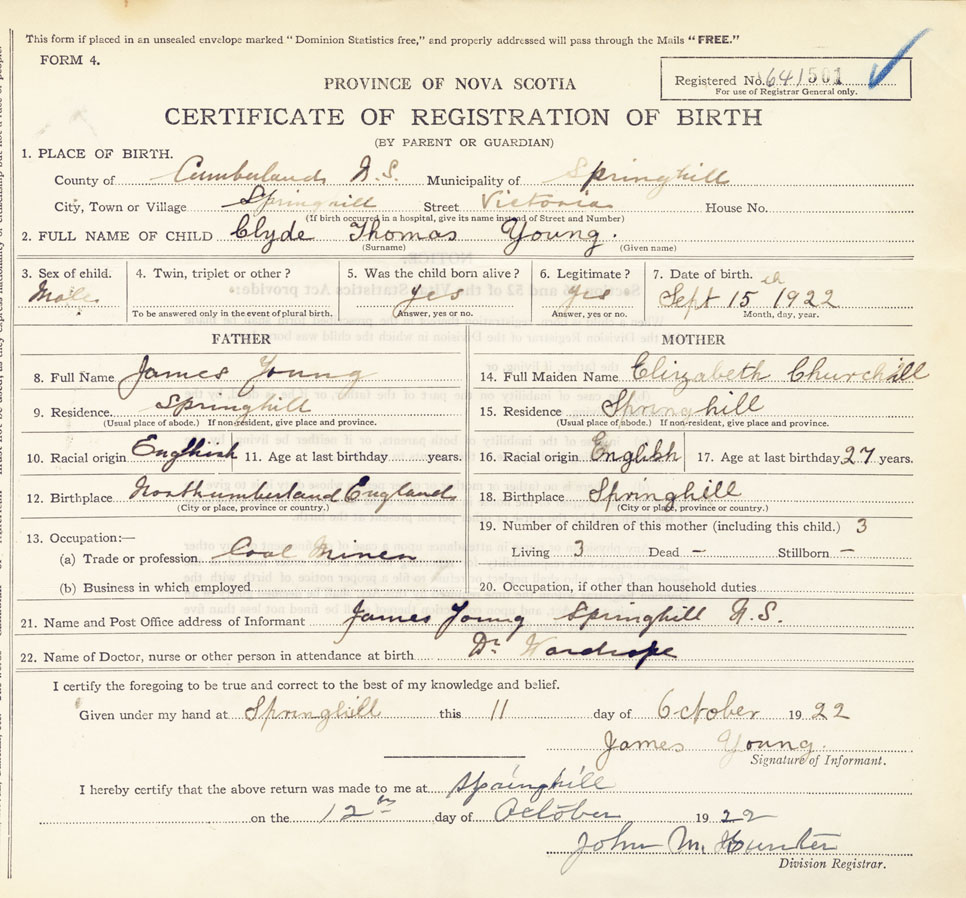 This form if placed in an unsealed envelope marked "Dominion Statistics free," and properly addressed will pass through the Mails "FREE."
FORM 4.
Registered No. 641501
For use of Registrar General only.
PROVINCE OF NOVA SCOTIA
CERTIFICATE OF REGISTRATION OF BIRTH
(BY PARENT OR GUARDIAN)
1. PLACE OF BIRTH.
County of Cumberland N.S. Municipality of Springhill
City, Town or Village Springhill Street Victoria House No.
(If birth occurred in a hospital, give its name instead of Street and Number)
2. FULL NAME OF CHILD Clyde Thomas Young.
(Surname) (Given name)
3. Sex of child. 4. Twin, triplet or other? 5. Was the child born alive? 6. Legitimate? 7. Date of birth.
Male yes Yes Sept 15th 1922
To be answered only in the event of plural birth. (Answer, yes or no. (Answer, yes or no. Month, day, year.
FATHER
8. Full Name James Young
9. Residence. Springhill
(Usual place of abode.) If non-resident, give place and province.
10. Racial origin English 11. Age at last birthday years.
12. Birthplace Northumberland England
(City or place, province or country.)
13. Occupation:—
(a) Trade or profession Coal Miner
(b) Business in which employed
MOTHER
14. Full Maiden Name Elizabeth Churchill
15. Residence Springhill
(Usual place of abode.) If non-resident, give place and province.
16. Racial origin English 17. Age at last birthday 27 years.
18. Birthplace Springhill
(City or place, province or country.)
19. Number of children of this mother (including this child.) 3
Living 3 Dead – Stillborn –
20. Occupation, if other than household duties
21. Name and Post Office address of Informant James Young Springhill N.S.
22. Name of Doctor, nurse or other person in attendance at birth Dr. Wardrope
I certify the foregoing to be true and correct to the best of my knowledge and belief.
Given under my hand at Springhill this 11 day of October 1922
James Young.
Signature of Informant.
I hereby certify that the above return was made to me at Springhill
on the 12th day of October 1922
John M. Hunter
Division Registrar.